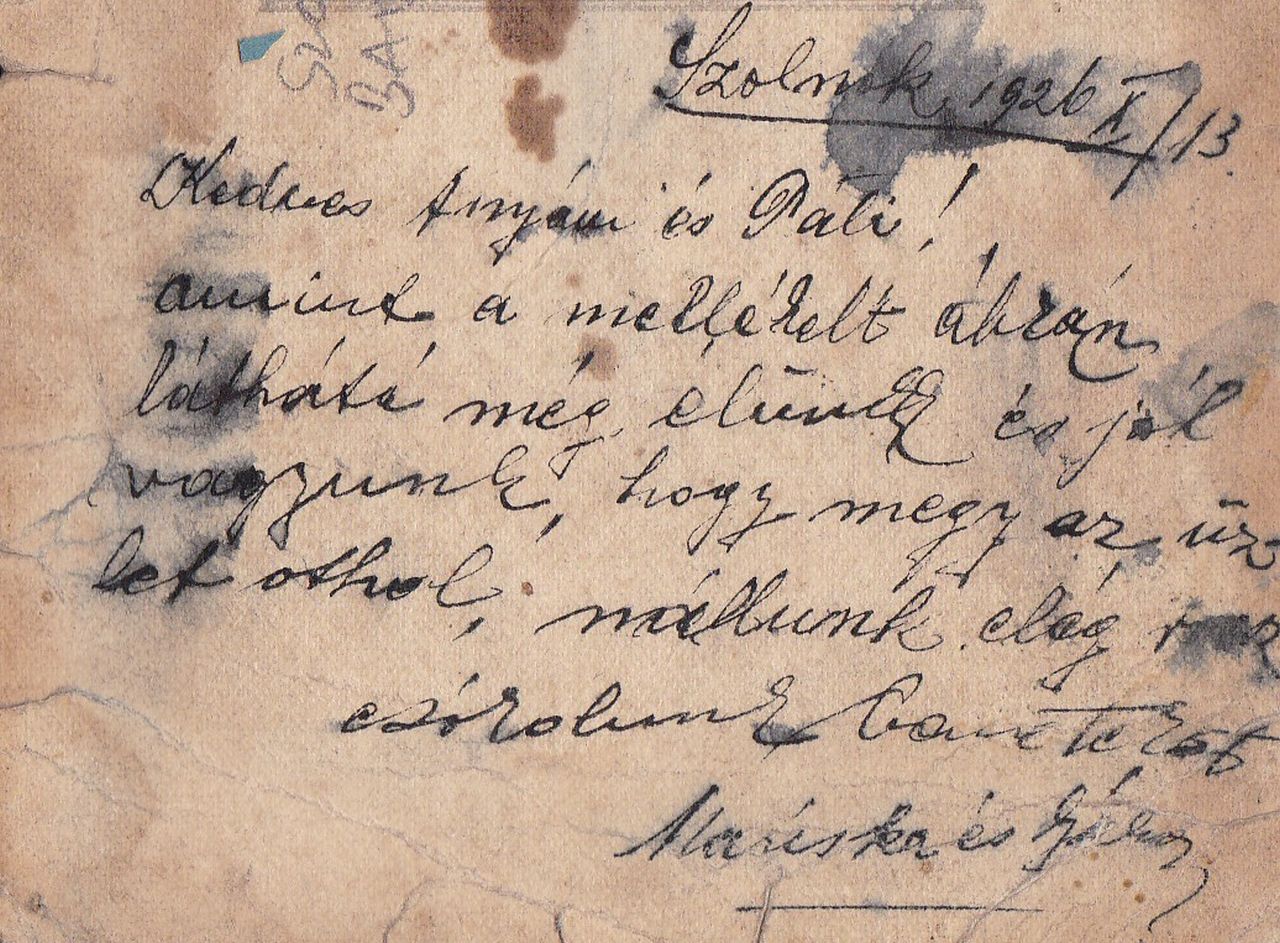 Szolnok, 1926 X/13
Kedves Anyám és Páti!
amint a mellékelt ábrán
látható még élünk és jól
vagyunk, hogy megy az üz
let othol, nállunk elég
csókolunk
Mariska és